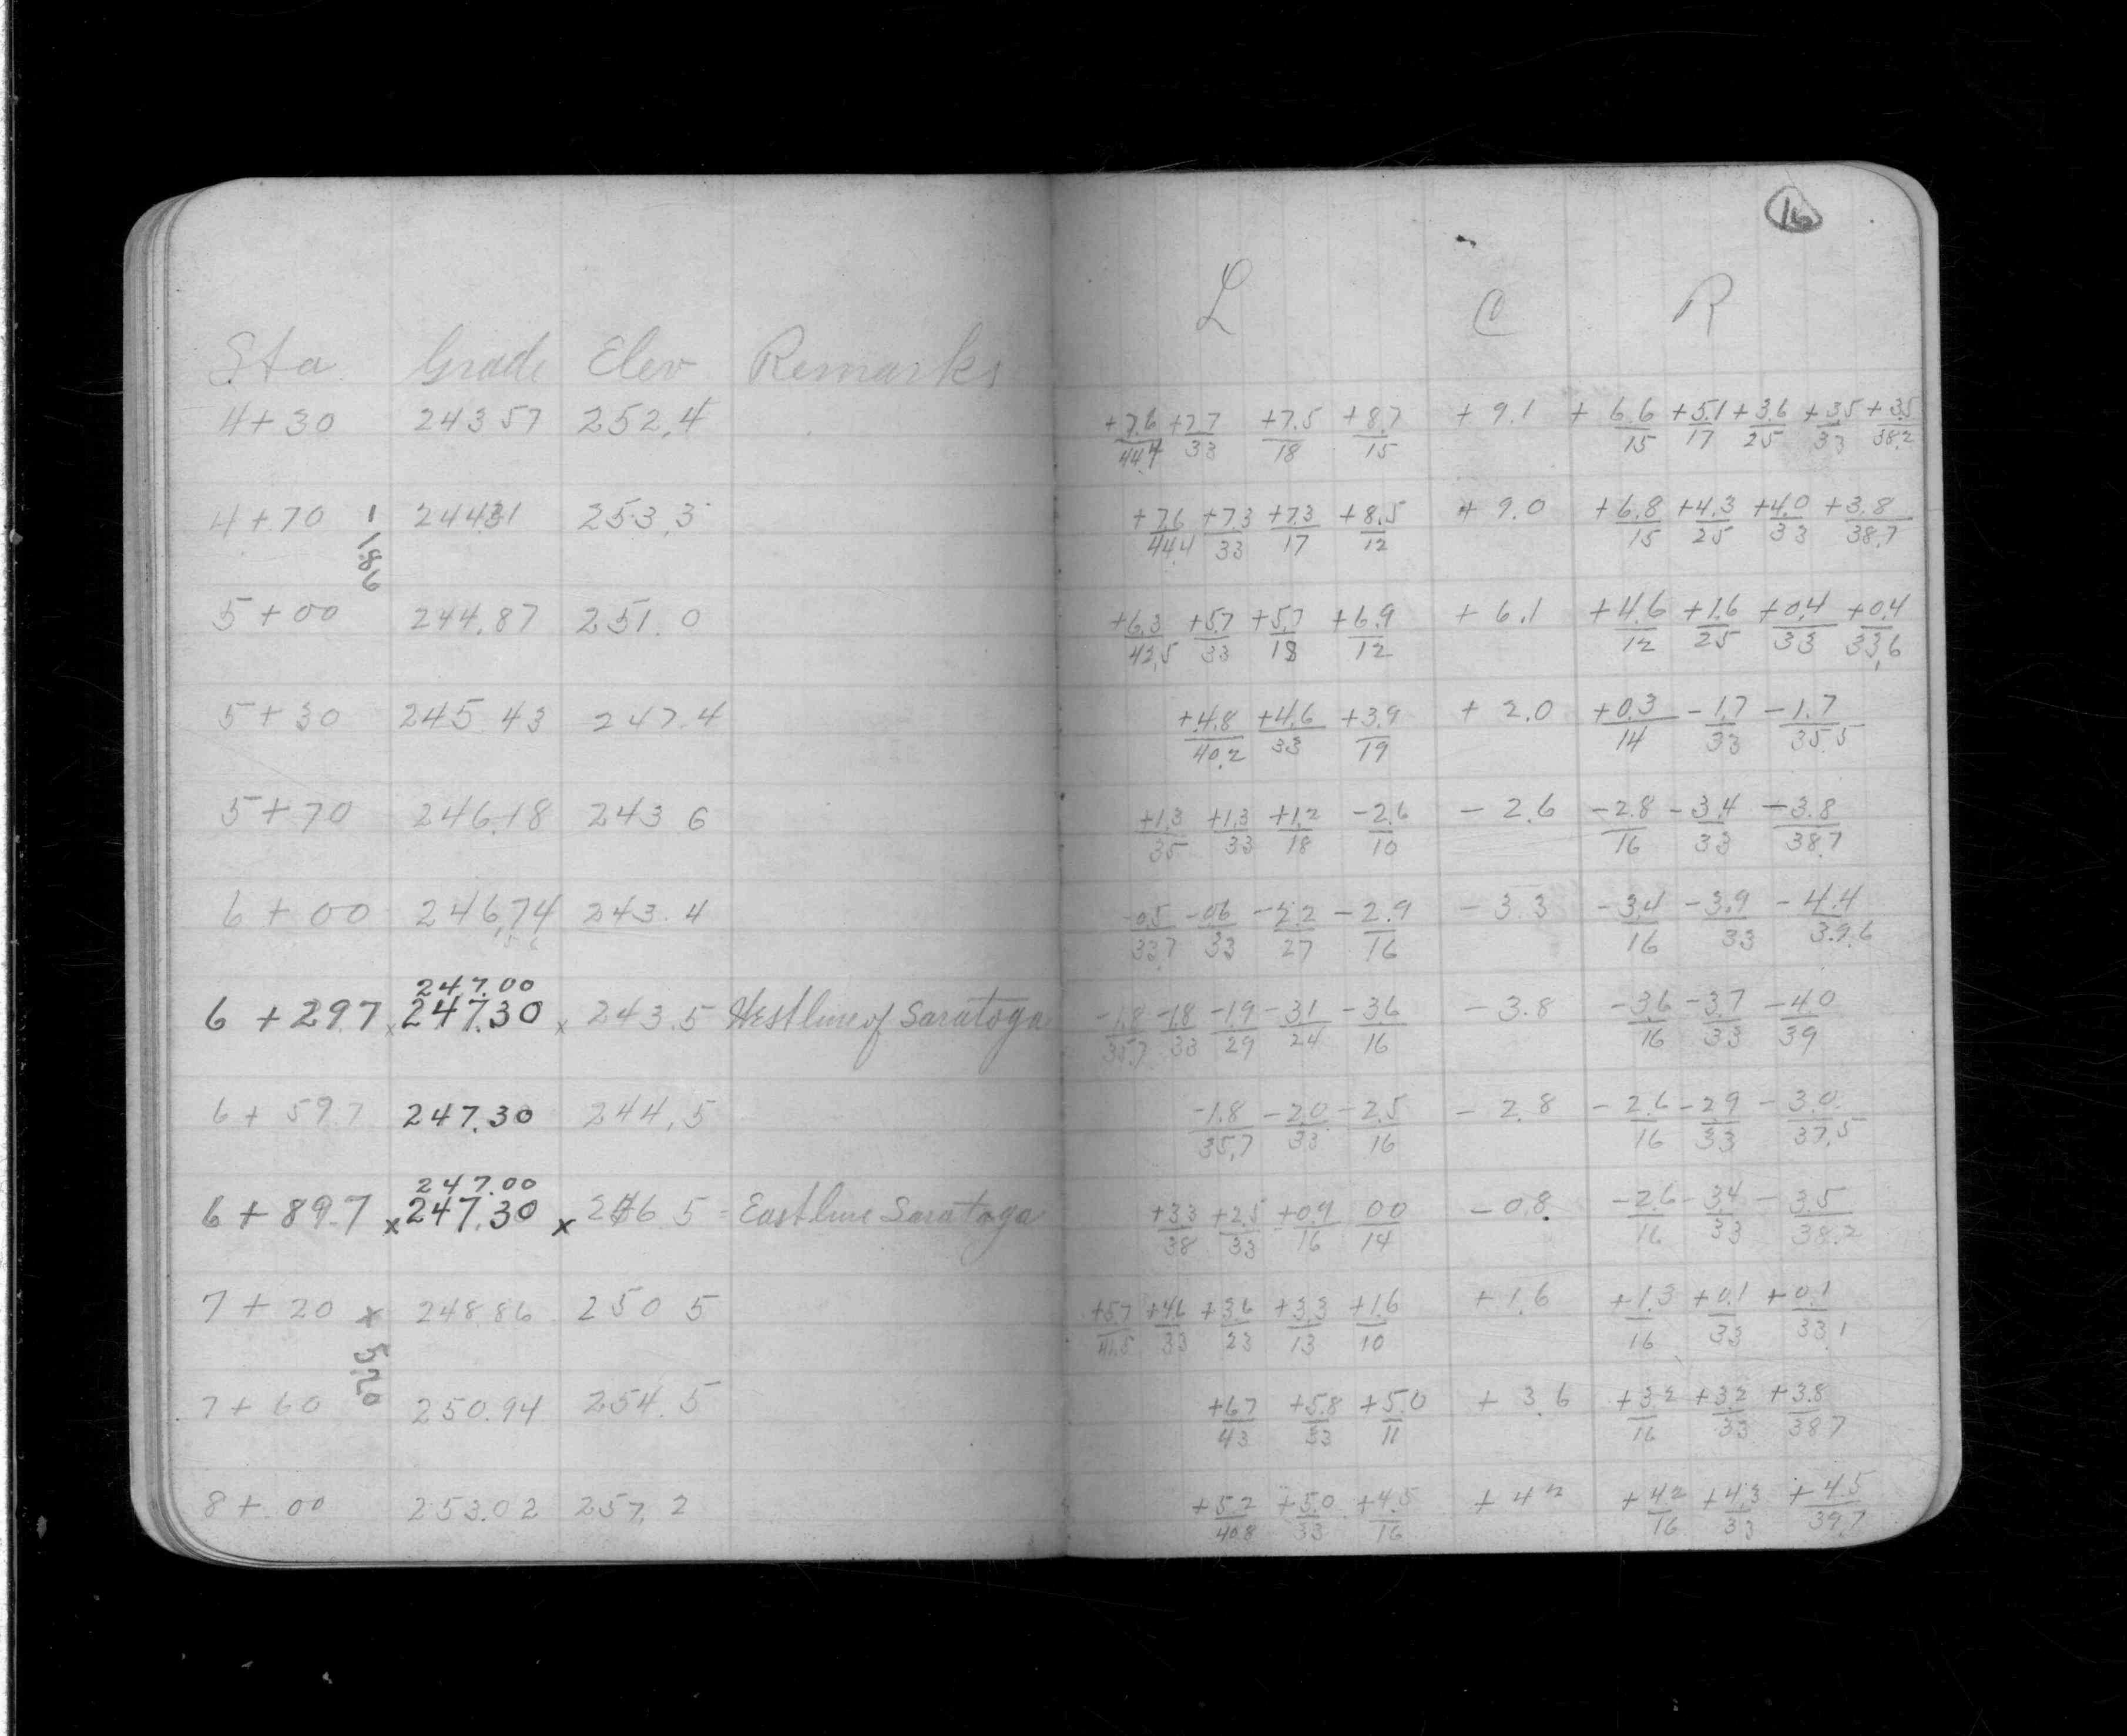 16
L C R
Sta Grade Elev Remarks
4+30 243 57 252.4 +7.6/44.4 +7.7/33 +7.5/18 +8.7/15 +9.1 +6.6/15 +5.1/17 +3.6/25 +3.5/33 +3.5/38.2
4+70 244.31 253.3 +7.6/44.4 +7.3/33 +7.3/17 +8.5/12 +9.0 +6.8/15 +4.3/25 +4.0/33 +3.8/38.7
1.86
5+00 244.87 251.0 +6.3/42.5 +5.7/33 +5.7/18 +6.9/12 +6.1 +4.6/12 +1.6/25 +0.4/33 +0.4/33.6
5+30 245.43 247.4 +4.8/40.2 +4.6/33 +3.9/19 +2.0 +0.3/14 -1.7/33 -1.7/35.5
5+70 246.18 243 6 +1.3/35 +1.3/33 +1.2/18 -2.6/10 -2.6 -2.8/16 -3.4/33 -3.8/38.7
6+00 246.74 243.4 -0.5/33.7 -0.6/33 -2.2/27 -2.9/16 -3.3 -3.4/16 -3.9/33 -4.4/39.6
247.00
6+29.7 x 247.30 x 243.5 Westline of Saratoga -1.8/35.7 -1.8/33 -1.9/29 -3.1/24 -3.6/16 -3.8 -3.6/16 -3.7/33 -4.0/39
6+59.7 247.30 244.5 -1.8/35.7 -2.0/33 -2.5/16 -2.8 -2.6/16 -2.9/33 -3.0/37.5
247.00
6+89.7 x 247.30 x 246.5 = Eastline Saratoga +3.3/38 +2.5/33 +0.9/16 00/14 -0.8 -2.6/16 -3.4/33 -3.5/38.2
7+20 x 248.86 250 5 +5.7/41.5 +4.6/33 +3.6/23 +3.3/13 +1.6/10 +1.6 +1.3/16 +0.1/33 +0.1/33.1
5.20
7+60 250.94 254.5 +6.7/43 +5.8/33 +5.0/11 +3.6 +3.2/16 +3.2/33 +3.8/38.7
8+00 253.02 257.2 +5.2/40.8 +5.0/33 +4.5/16 +4.2 +4.2/16 +4.3/33 +4.5/39.7